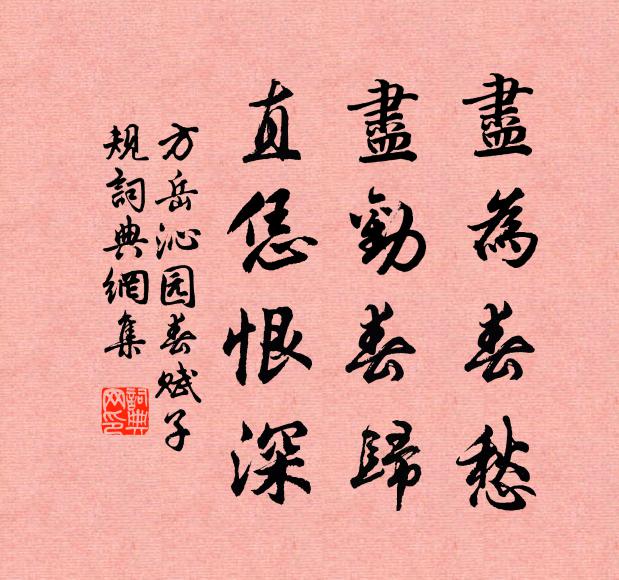 盡為春愁
盡勸春歸
直恁恨深
方岳沁园春赋子
规詞典網集
詞典
网印